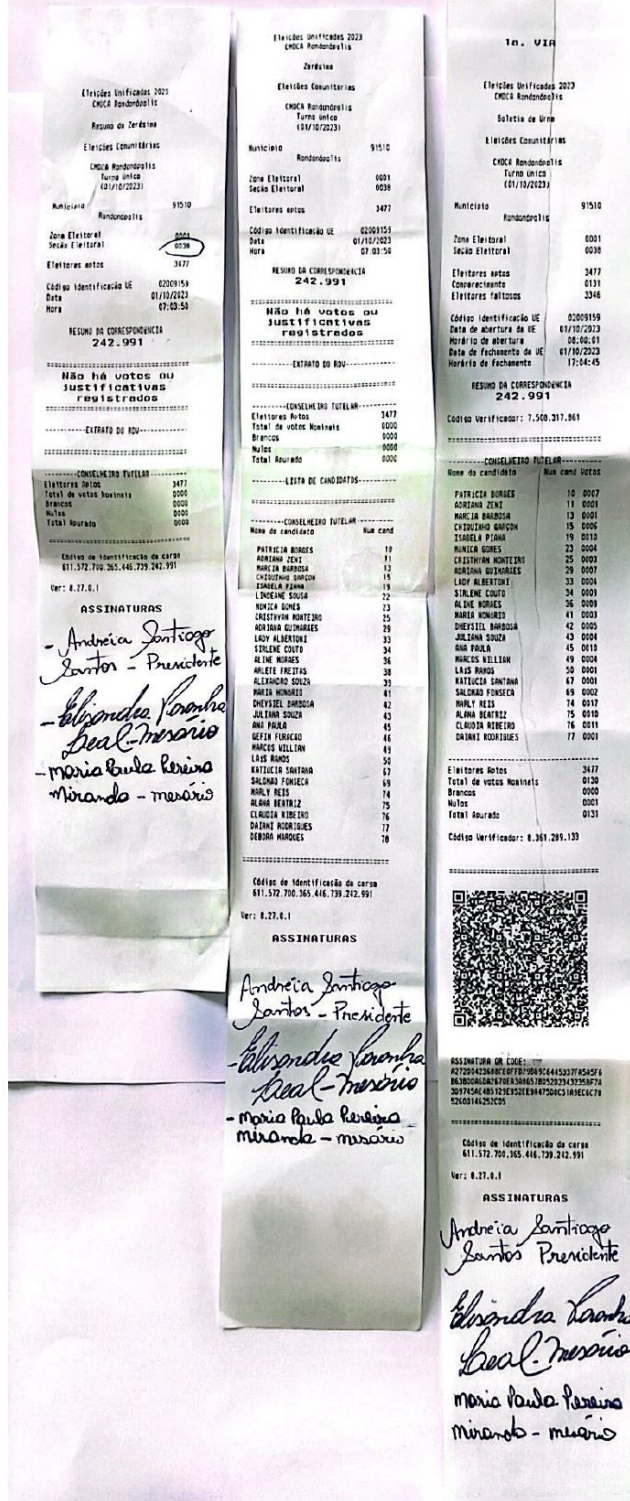 Eleições Unificadas 2023
CMDCA Rondonópolis
Resumo da Zerésima
Eleições Comunitárias
CMDCA Rondonópolis
Turno único
(01/10/2023)
Município 91510
Rondonópolis
Zona Eleitoral 0001
Seção Eleitoral 0038
Eleitores aptos 3477
Código identificação UE 02009159
Data 01/10/2023
Hora 07:03:50
RESUMO DA CORRESPONDÊNCIA
242.991
Não há votos ou
justificativas
registrados
EXTRATO DO RDV
CONSELHEIRO TUTELAR
Eleitores Aptos 3477
Total de votos Nominais 0000
Brancos 0000
Nulos 0000
Total Apurado 0000
Código de identificação da carga
611.572.700.365.446.739.242.991
Ver: 8.27.0.1
ASSINATURAS
- Andréia Santiago
Santos - Presidente
- Elisandra Paranha
Leal - mesário
- Maria Paula Pereira
Miranda - mesário
Eleições Unificadas 2023
CMDCA Rondonópolis
Zerésima
Eleições Comunitárias
CMDCA Rondonópolis
Turno único
(01/10/2023)
Município 91510
Rondonópolis
Zona Eleitoral 0001
Seção Eleitoral 0038
Eleitores aptos 3477
Código identificação UE 02009159
Data 01/10/2023
Hora 07:03:50
RESUMO DA CORRESPONDÊNCIA
242.991
Não há votos ou
justificativas
registrados
EXTRATO DO RDV
CONSELHEIRO TUTELAR
Eleitores Aptos 3477
Total de votos Nominais 0000
Brancos 0000
Nulos 0000
Total Apurado 0000
LISTA DE CANDIDATOS
CONSELHEIRO TUTELAR
Nome do candidato Num cand
PATRICIA BORGES 10
ADRIANA ZENI 11
MARCIA BARBOSA 13
CHIQUINHO GARÇON 15
ISABELA PIANA 19
LINDEANE SOUSA 22
MONICA GOMES 23
CRISTHYAN MONTEIRO 25
ADRIANA GUIMARAES 29
LADY ALBERTONI 33
SIRLENE COUTO 34
ALINE MORAES 36
ARLETE FREITAS 38
ALEXANDRO SOUZA 39
MARIA HONORIO 41
DHEYSIEL BARBOSA 42
JULIANA SOUZA 43
ANA PAULA 45
GEFIN FURACÃO 46
MARCOS WILLIAN 49
LAIS RAMOS 50
KATIUCIA SANTANA 67
SALOMAO FONSECA 69
MARLY REIS 74
ALANA BEATRIZ 75
CLAUDIA RIBEIRO 76
DAIANI RODRIGUES 77
DEBORA MARQUES 78
Código de identificação da carga
611.572.700.365.446.739.242.991
Ver: 8.27.0.1
ASSINATURAS
Andréia Santiago
Santos - Presidente
- Elisandra Paranha
Leal - mesário
- Maria Paula Pereira
miranda - mesário
1a. VIA
Eleições Unificadas 2023
CMDCA Rondonópolis
Boletim de Urna
Eleições Comunitárias
CMDCA Rondonópolis
Turno único
(01/10/2023)
Município 91510
Rondonópolis
Zona Eleitoral 0001
Seção Eleitoral 0038
Eleitores aptos 3477
Comparecimento 0131
Eleitores faltosos 3346
Código identificação UE 02009159
Data de abertura da UE 01/10/2023
Horário de abertura 08:00:01
Data de fechamento da UE 01/10/2023
Horário de fechamento 17:04:45
RESUMO DA CORRESPONDÊNCIA
242.991
Código Verificador: 7.508.317.861
CONSELHEIRO TUTELAR
Nome do candidato Num cand Votos
PATRICIA BORGES 10 0007
ADRIANA ZENI 11 0001
MARCIA BARBOSA 13 0001
CHIQUINHO GARÇON 15 0006
ISABELA PIANA 19 0010
MONICA GOMES 23 0004
CRISTHYAN MONTEIRO 25 0003
ADRIANA GUIMARAES 29 0007
LADY ALBERTONI 33 0004
SIRLENE COUTO 34 0009
ALINE MORAES 36 0009
MARIA HONORIO 41 0003
DHEYSIEL BARBOSA 42 0005
JULIANA SOUZA 43 0004
ANA PAULA 45 0010
MARCOS WILLIAN 49 0004
LAIS RAMOS 50 0001
KATIUCIA SANTANA 67 0001
SALOMAO FONSECA 69 0002
MARLY REIS 74 0017
ALANA BEATRIZ 75 0010
CLAUDIA RIBEIRO 76 0011
DAIANI RODRIGUES 77 0001
Eleitores Aptos 3477
Total de votos Nominais 0130
Brancos 0000
Nulos 0001
Total Apurado 0131
Código Verificador: 8.361.289.133
ASSINATURA QR CODE:
Código de identificação da carga
611.572.700.365.446.739.242.991
Ver: 8.27.0.1
ASSINATURAS
Andréia Santiago
Santos Presidente
Elisandra Paranha
Leal - mesário
Maria Paula Pereira
miranda - mesário